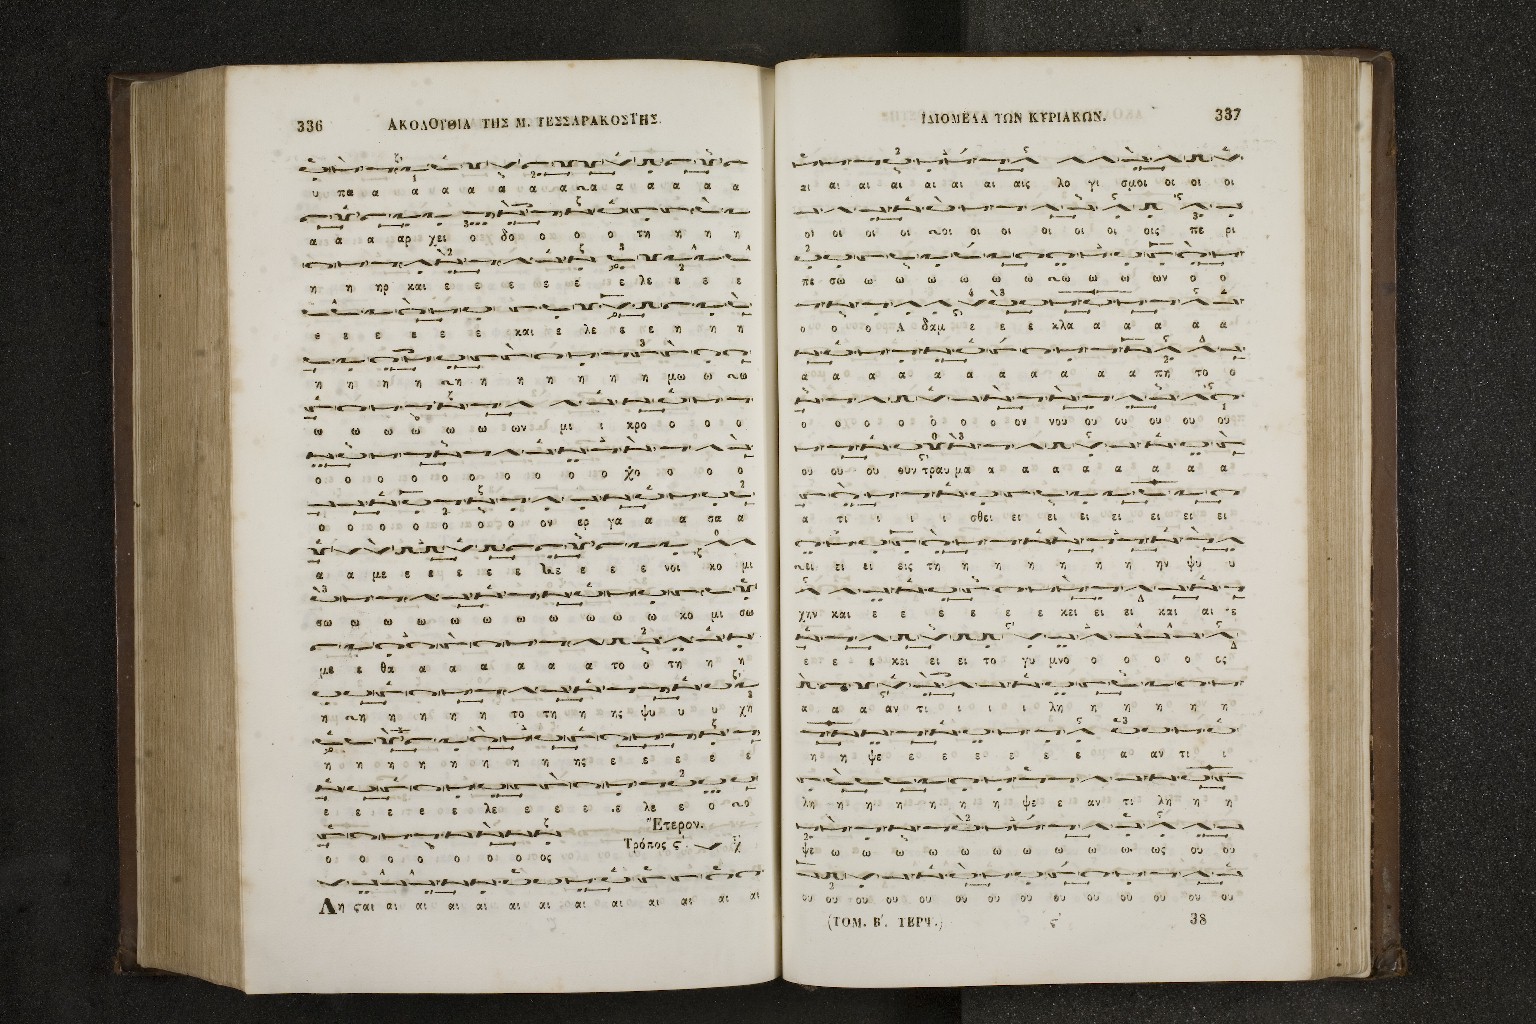 336
ΑΚΟΛΟΥΘΙΑ ΤΗΣ Μ. ΤΕΣΣΑΡΑΚΟΣΤΗΣ.
υ πα α α α α α α α α α α α α
α α α αρ χει ο δο ο ο ο τη η η η
η η ηρ και ε ε ε ε ε ε λε ε ε ε
ε ε ε ε ε ε και ε λε ε ε η η η
η η η η η η η η η η η μω ω ω
ω ω ω ω ω ω ων μι ι κρο ο ο ο
ο ο ο ο ο ο ο ο ο ο χο ο ο ο
ο ο ο ο ο ο ο ο ον ερ γα α α σα α
α α με ε ε ε ε ε ε ε ε ε νοι κο μι
σω ω ω ω ω ω ω ω ω ω ω κο μι σω
με ε θα α α α α α α το ο τη η η
η η η η η η το τη η ης ψυ υ υ χη
η η η η η η η η ης ε ε ε ε ε
ε ε ε ε ε λε ε ε ε ε λε ε ο ο
Ἕτερον.
ο ο ο ο ο ο ο ος
Τρόπος ς΄.
Λη ςαι αι αι αι αι αι αι αι αι αι αι αι
337
ΙΔΙΟΜΕΛΑ ΤΩΝ ΚΥΡΙΑΚΩΝ.
αι αι αι αι αι αι αι αις λο γι σμοι οι οι οι
οι οι οι οι οι οι οι οι οι οι οις πε ρι
πε σω ω ω ω ω ω ω ω ω ω ων ο ο
ο ο ο Α δαμ ε ε ε κλα α α α α α
α α α α α α α α α α α πη το ο
ο ο ο ο ο ο ο ον νου ου ου ου ου ου
ου ου ου συν τραυ μα α α α α α α α α
α τι ι ι ι σθει ει ει ει ει ει ει ει
ει ει ει εις τη η η η η η η ην ψυ υ
χην και ε ε ε ε ε ε κει ει ει και αι ε
ε ε ε κει ει ει το γυ μνο ο ο ο ο ος
α α α αν τι ι ι ι λη η η η η η
η η ψε ε ε ε ε ε ε α αν τι ι
λη η η η η η η ψε ε αν τι λη η η
ψε ω ω ω ω ω ω ω ω ω ω ως ου ου
ου ου ου ου ου ου ου ου ου ου ου ου ου
(ΤΟΜ. Β΄. ΤΕΡΨ.)
ς΄
38